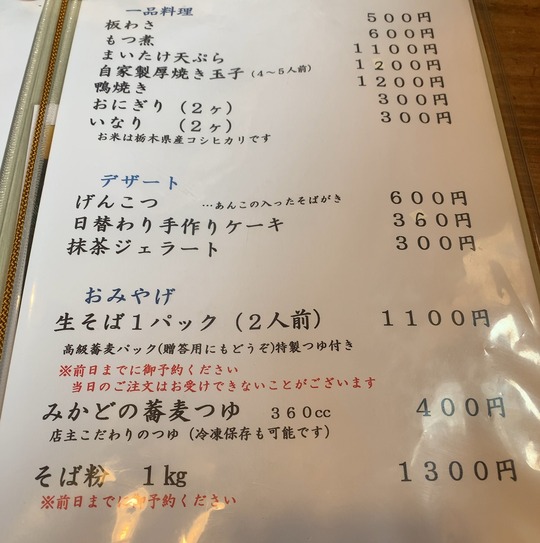 一品料理
板わさ 500円
もつ煮 600円
まいたけ天ぷら 1100円
自家製厚焼き玉子（4～5人前） 1200円
鴨焼き 1200円
おにぎり（2ヶ） 300円
いなり （2ヶ） 300円
お米は栃木県産コシヒカリです
デザート
げんこつ …あんこの入ったそばがき 600円
日替わり手作りケーキ 360円
抹茶ジェラート 300円
おみやげ
生そば1パック（2人前） 1100円
高級蕎麦パック(贈答用にもどうぞ)特製つゆ付き
※前日までに御予約ください
当日のご注文はお受けできないことがございます
みかどの蕎麦つゆ 360cc 400円
店主こだわりのつゆ（冷凍保存も可能です）
そば粉 1kg 1300円
※前日までに御予約ください